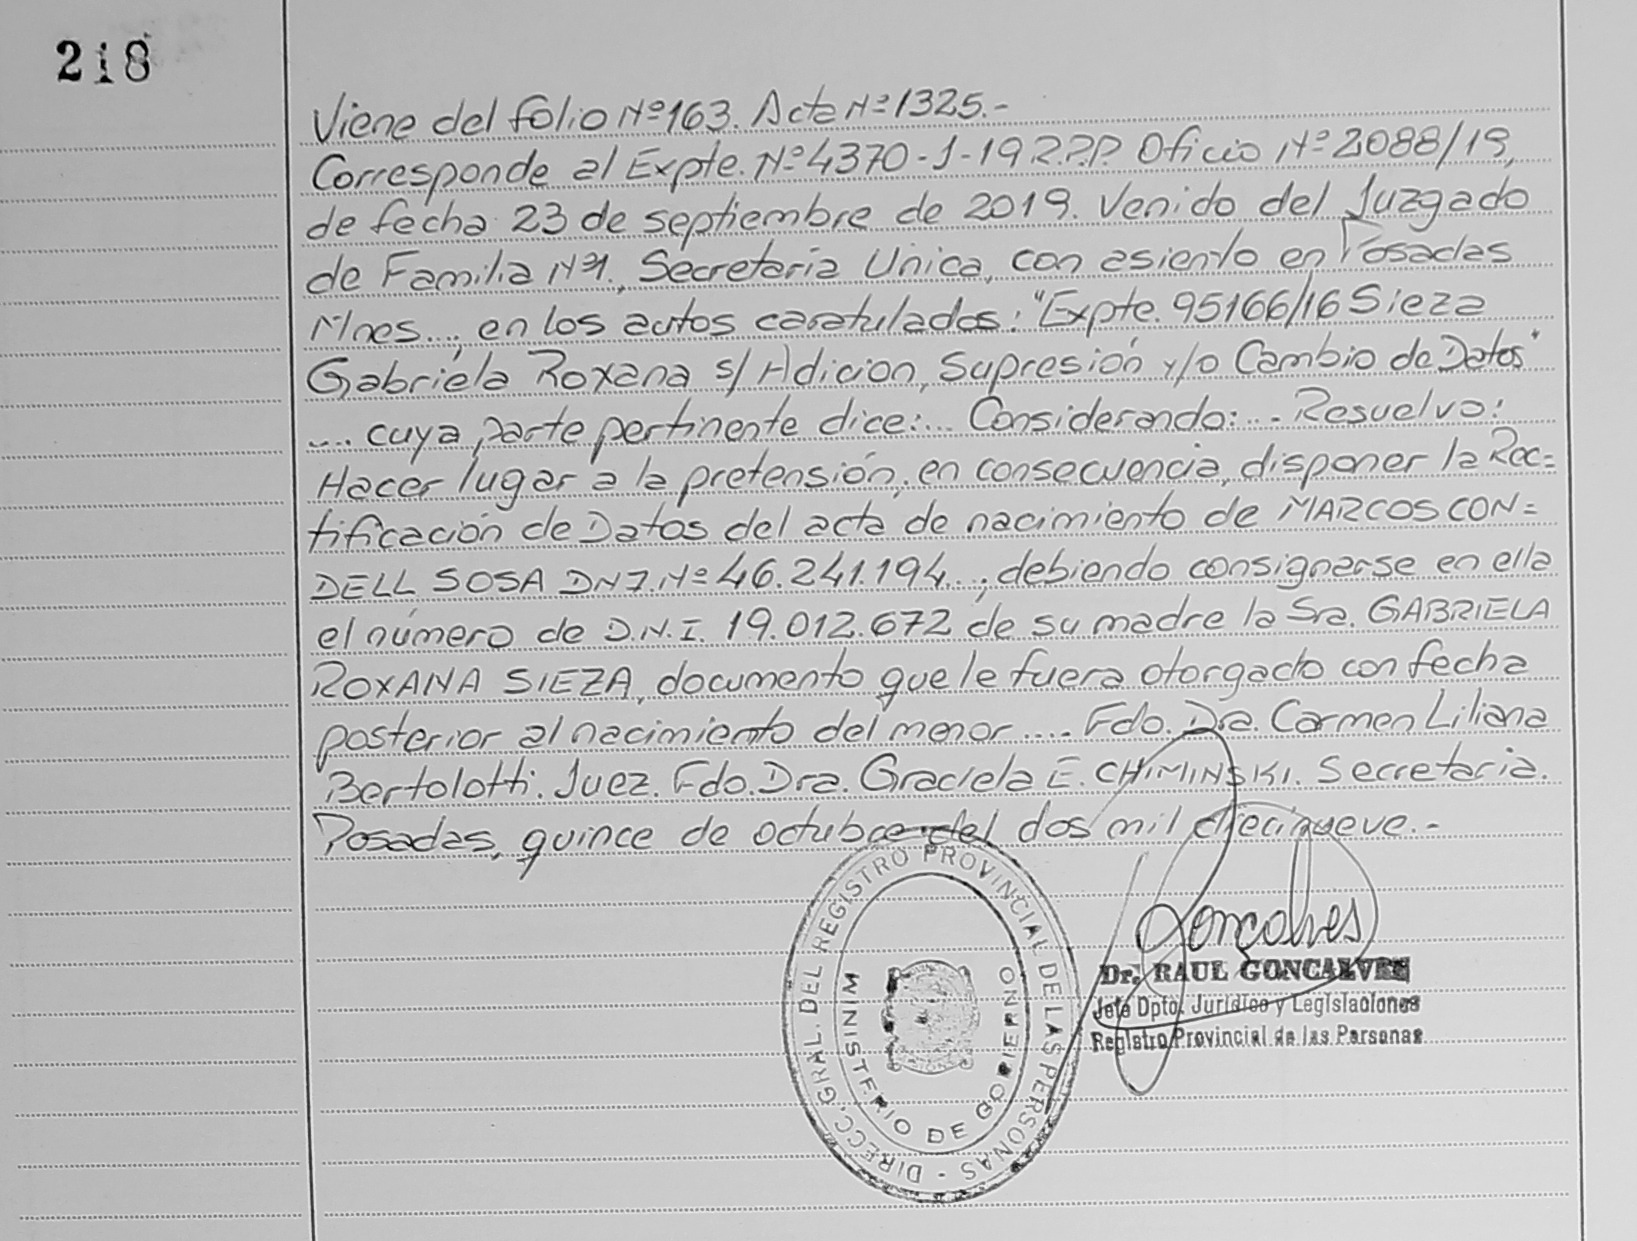 218
Viene del folio Nº 163. Acta Nº 1325.-
Corresponde al Expte. Nº 4370-J-19 R.P.P. Oficio Nº 2088/19,
de fecha 23 de septiembre de 2019. Venido del Juzgado
de Familia Nº1., Secretaria Unica, con asiento en Posadas
Mnes..., en los autos caratulados: "Expte. 95166/16 Sieza
Gabriela Roxana s/ Adicion, Supresión y/o Cambio de Datos"
.... cuya parte pertinente dice:... Considerando:... Resuelvo:
Hacer lugar a la pretensión, en consecuencia, disponer la Rec=
tificación de Datos del acta de nacimiento de MARCOS CON=
DELL SOSA DNI. Nº 46.241.194..., debiendo consignarse en ella
el número de D.N.I. 19.012.672 de su madre la Sra. GABRIELA
ROXANA SIEZA, documento que le fuera otorgado con fecha
posterior al nacimiento del menor .... Fdo. Dra. Carmen Liliana
Bertolotti. Juez. Fdo. Dra. Graciela E. CHIMINSKI. Secretaria.
Posadas, quince de octubre del dos mil diecinueve.-
DIRECC. GRAL. DEL REGISTRO PROVINCIAL DE LAS PERSONAS -
MINISTERIO DE GOBIERNO
Goncalves
Dr. RAUL GONCALVES
Jefe Dpto. Jurídico y Legislaciones
Registro Provincial de las Personas